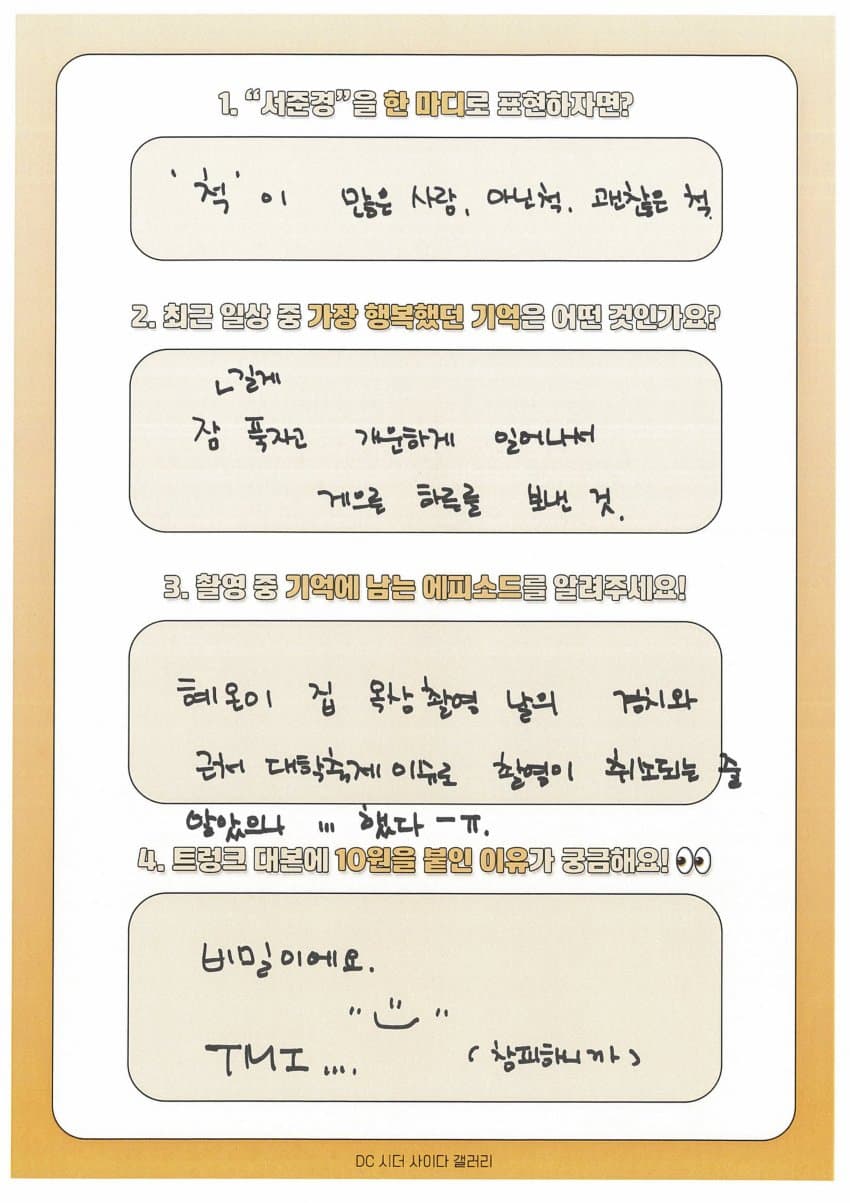 1. “서준경”을 한 마디로 표현하자면?
'척'이 많은 사람, 아닌척, 괜찮은 척.
2. 최근 일상 중 가장 행복했던 기억은 어떤 것인가요?
길게
잠 푹자고 개운하게 일어나서
게으른 하루를 보낸 것.
3. 촬영 중 기억에 남는 에피소드를 알려주세요!
혜온이 집 옥상 촬영 날의 경치와
근처 대학축제 이슈로 촬영이 취소되는 줄
알았으나 ... 했다 ㅡㅠ.
4. 트렁크 대본에 10원을 붙인 이유가 궁금해요! 👀
비밀이에요.
" ü "
TMI .... (창피하니까)
DC 시더 사이다 갤러리